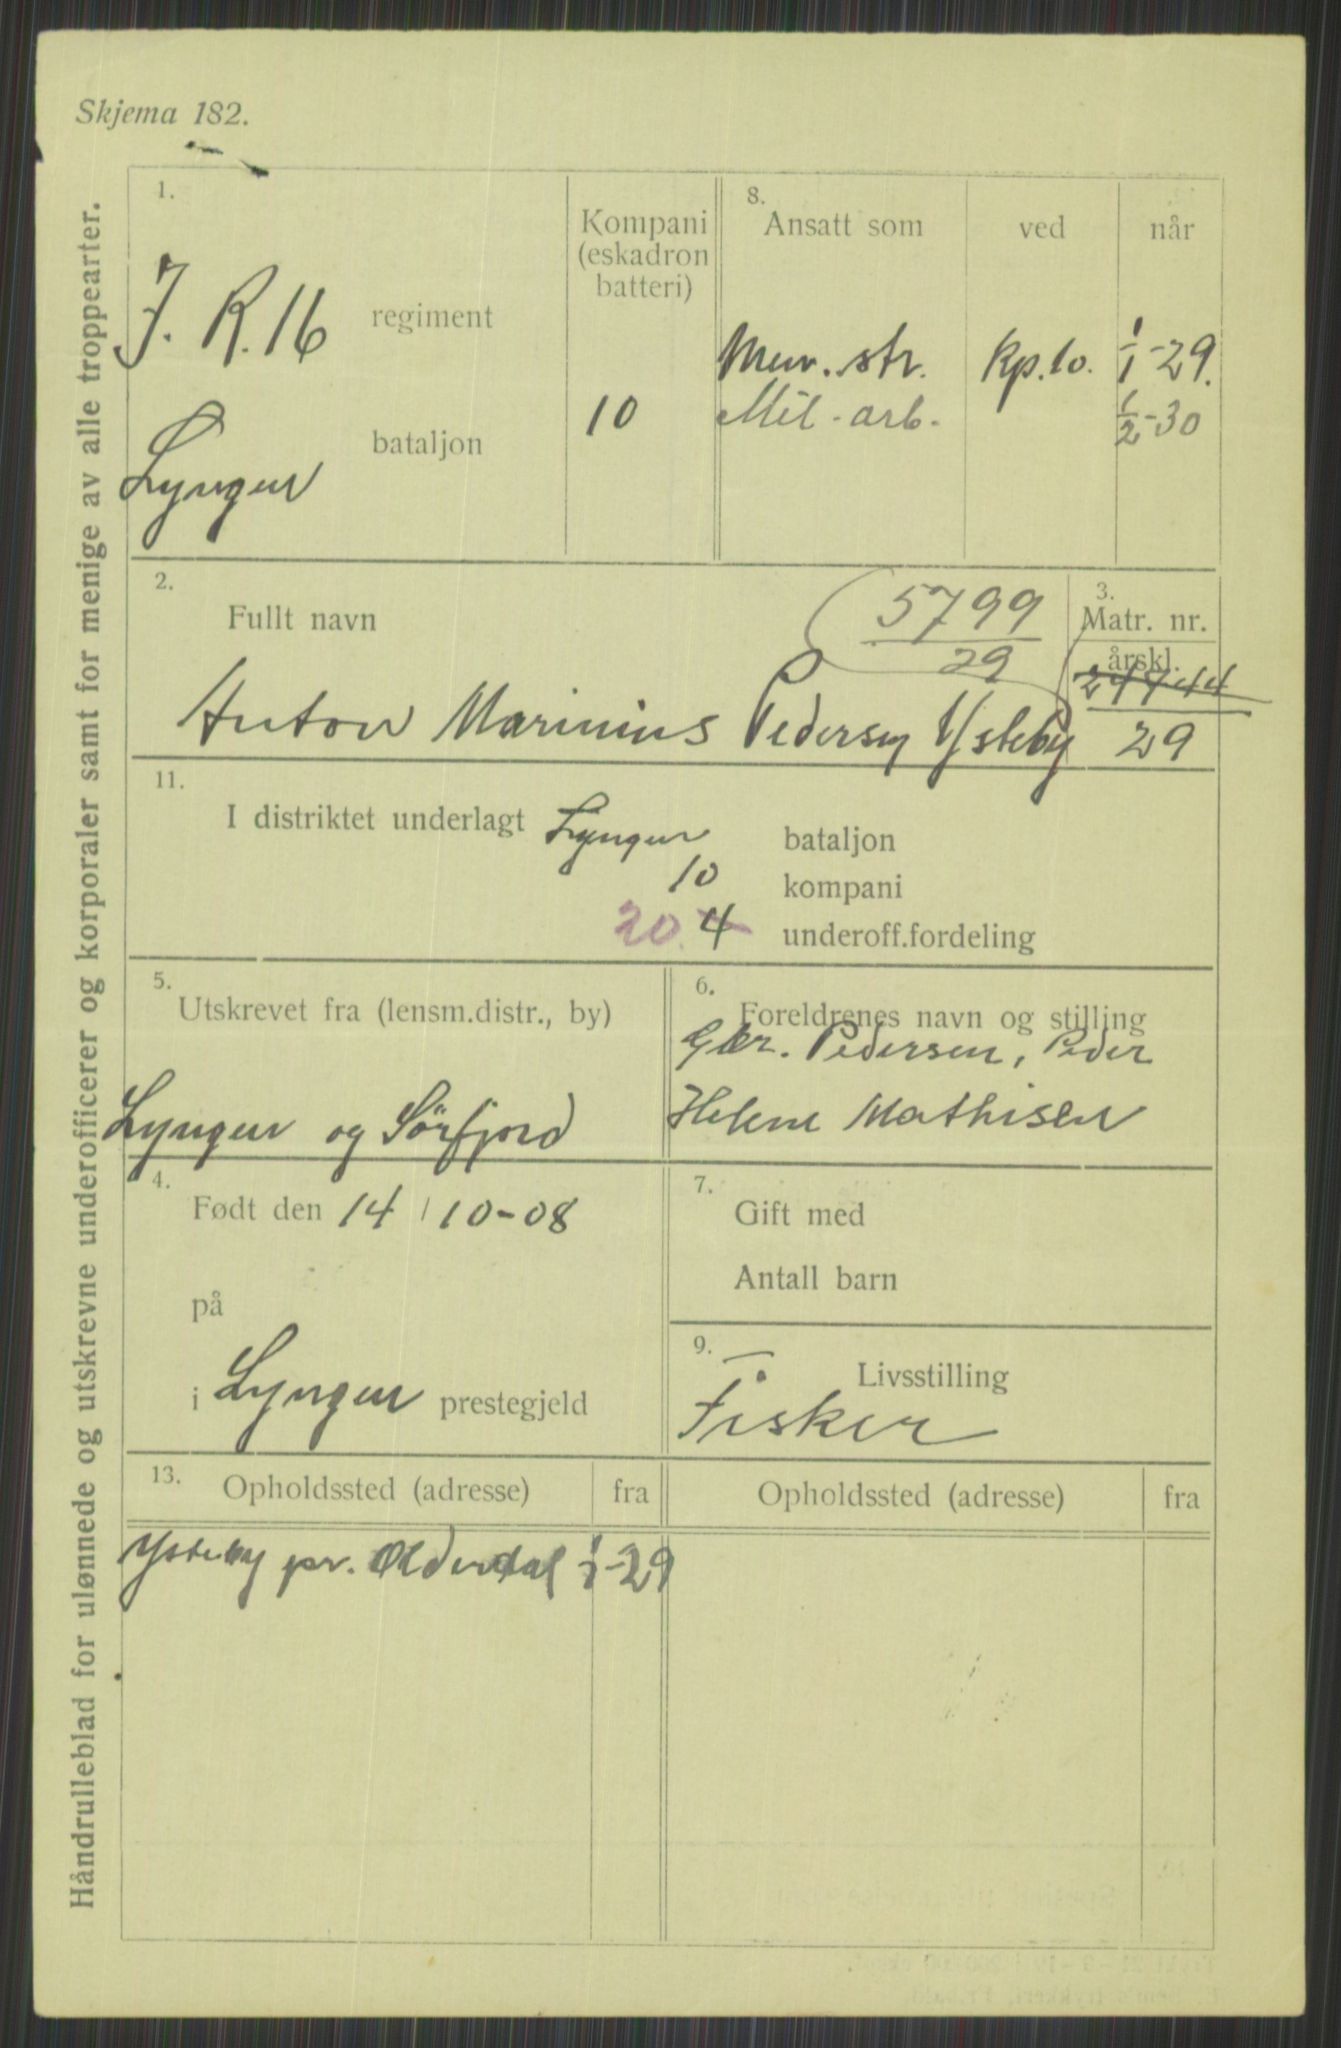 Skjema 182.
Håndrulleblad for ulønnede og utskrevne underofficerer og korporaler samt for menige av alle troppearter.
1.
J. R. 16 regiment
Lyngen bataljon
Kompani
(eskadron
batteri)
10
8.
Ansatt som ved når
Men. str. Kp. 10. 1/1-29.
Mil. arb. 1/2-30
2.
Fullt navn
5799
29
Anton Marinius Pedersen Ysteby
3.
Matr. nr.
årskl.
29
11.
I distriktet underlagt Lyngen bataljon
10 kompani
20. 4 underoff.fordeling
5.
Utskrevet fra (lensm.distr., by)
Lyngen og Sörfjord
6.
Foreldrenes navn og stilling
Gbr. Pedersen, Peder
Helene Mathisen
4.
Født den 14/10-08
på
i Lyngen prestegjeld
7.
Gift med
Antall barn
9.
Livsstilling
Fisker
13.
Opholdssted (adresse) fra Opholdssted (adresse) fra
Ysteby pr. Olderdal 1/1-29